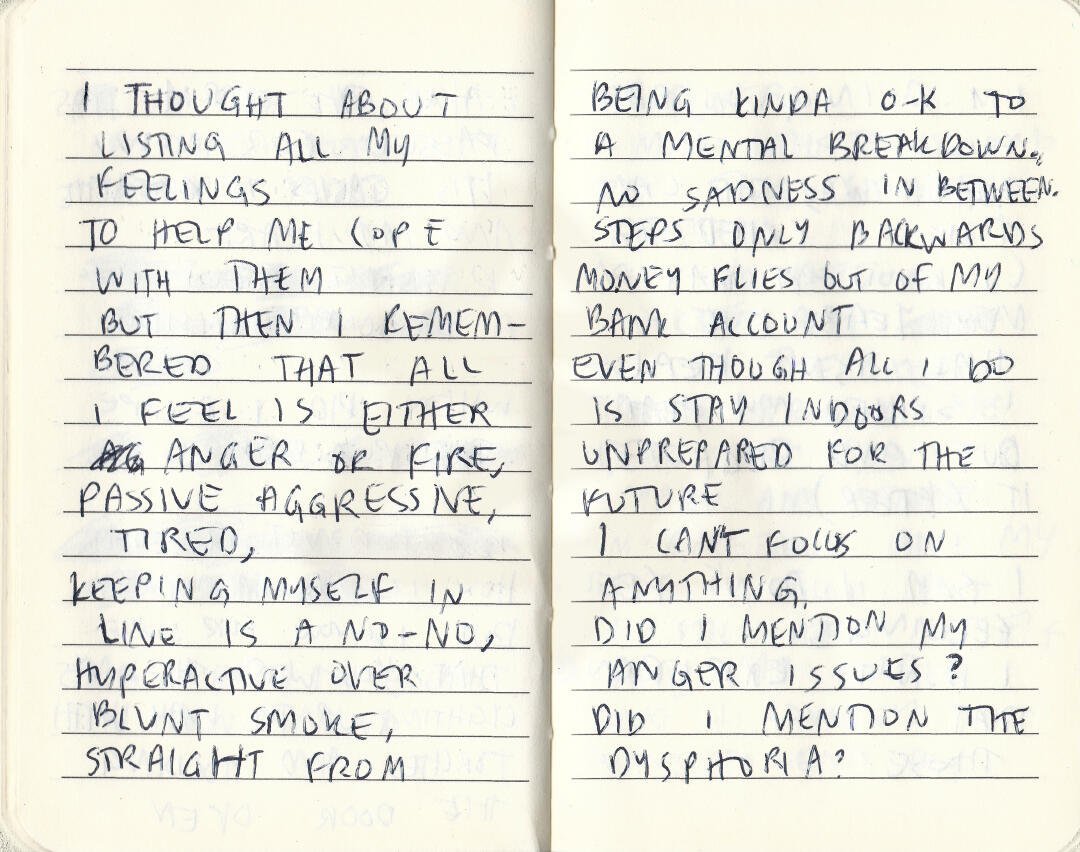 I THOUGHT ABOUT
LISTING ALL MY
FEELINGS
TO HELP ME COPE
WITH THEM
BUT THEN I REMEM-
BERED THAT ALL
I FEEL IS EITHER
ANGER OR FIRE,
PASSIVE AGGRESSIVE,
TIRED,
KEEPING MYSELF IN
LINE IS A NO-NO,
HYPERACTIVE OVER
BLUNT SMOKE,
STRAIGHT FROM
BEING KINDA O-K TO
A MENTAL BREAKDOWN.
NO SADNESS IN BETWEEN.
STEPS ONLY BACKWARDS
MONEY FLIES OUT OF MY
BANK ACCOUNT
EVEN THOUGH ALL I DO
IS STAY INDOORS
UNPREPARED FOR THE
FUTURE
I CAN'T FOCUS ON
ANYTHING.
DID I MENTION MY
ANGER ISSUES?
DID I MENTION THE
DYSPHORIA?